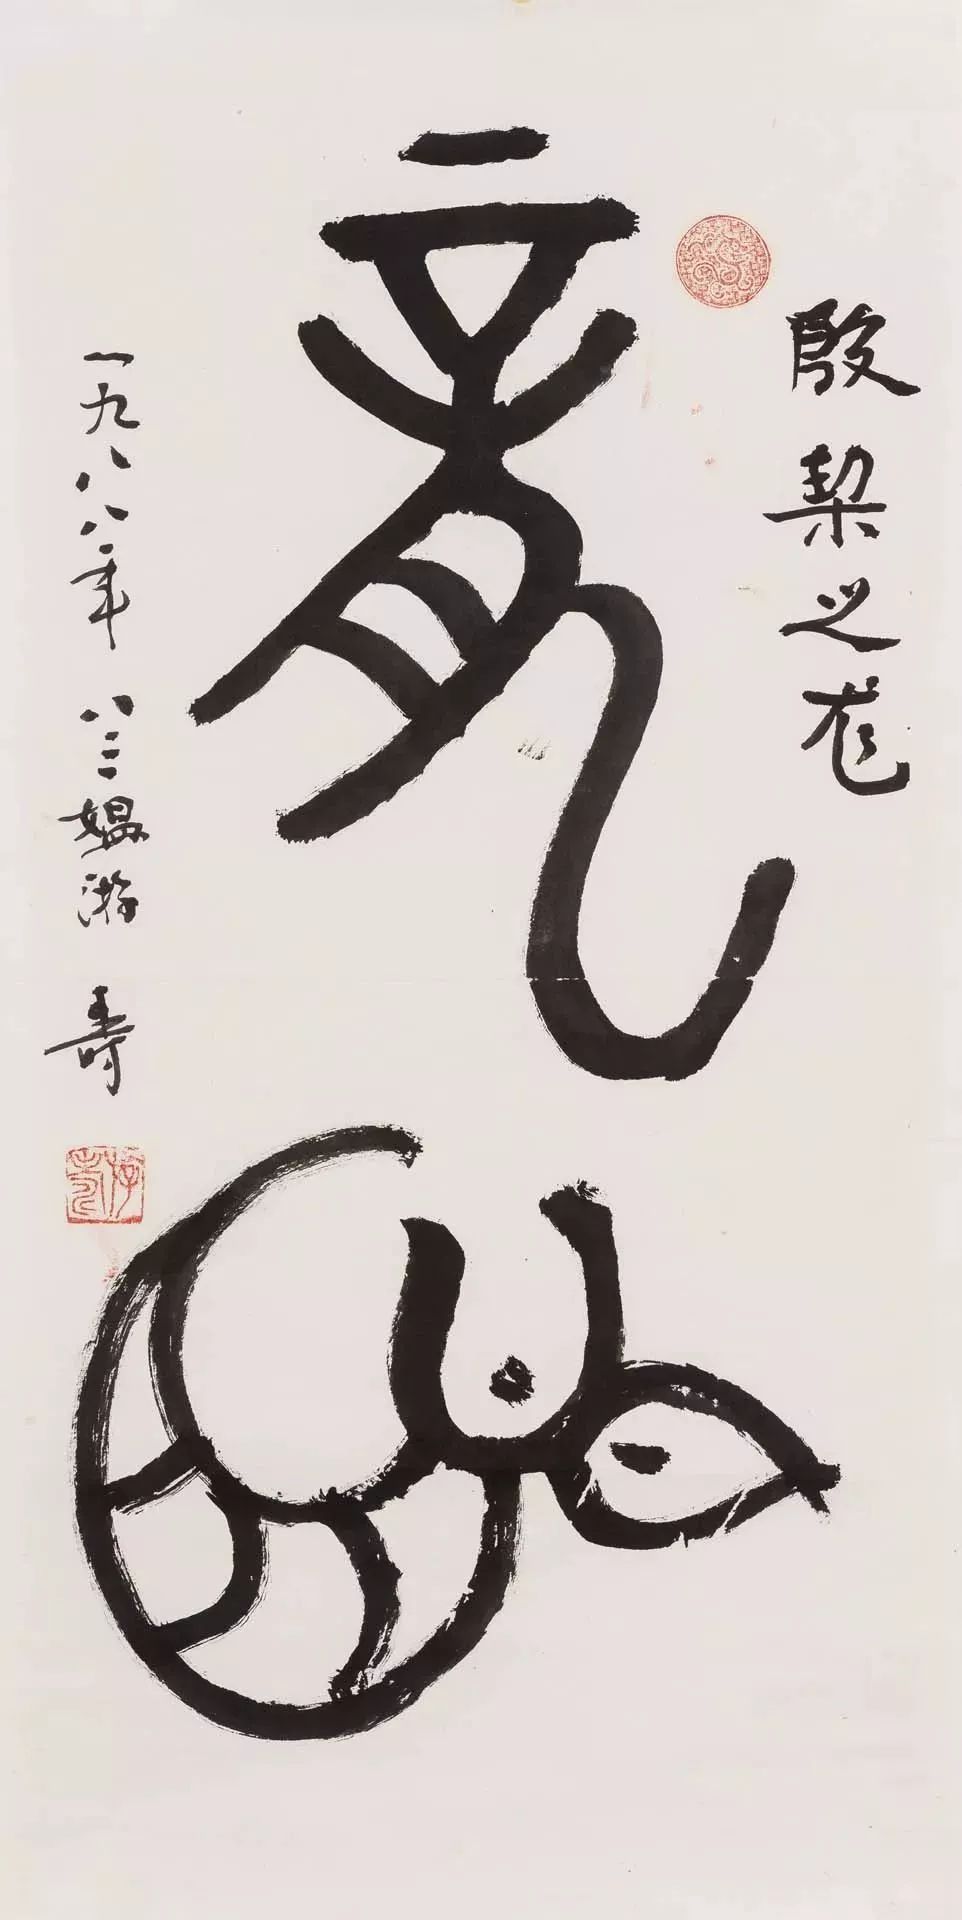 殷栔之尨
龍
一九八八年 八三媪游 寿